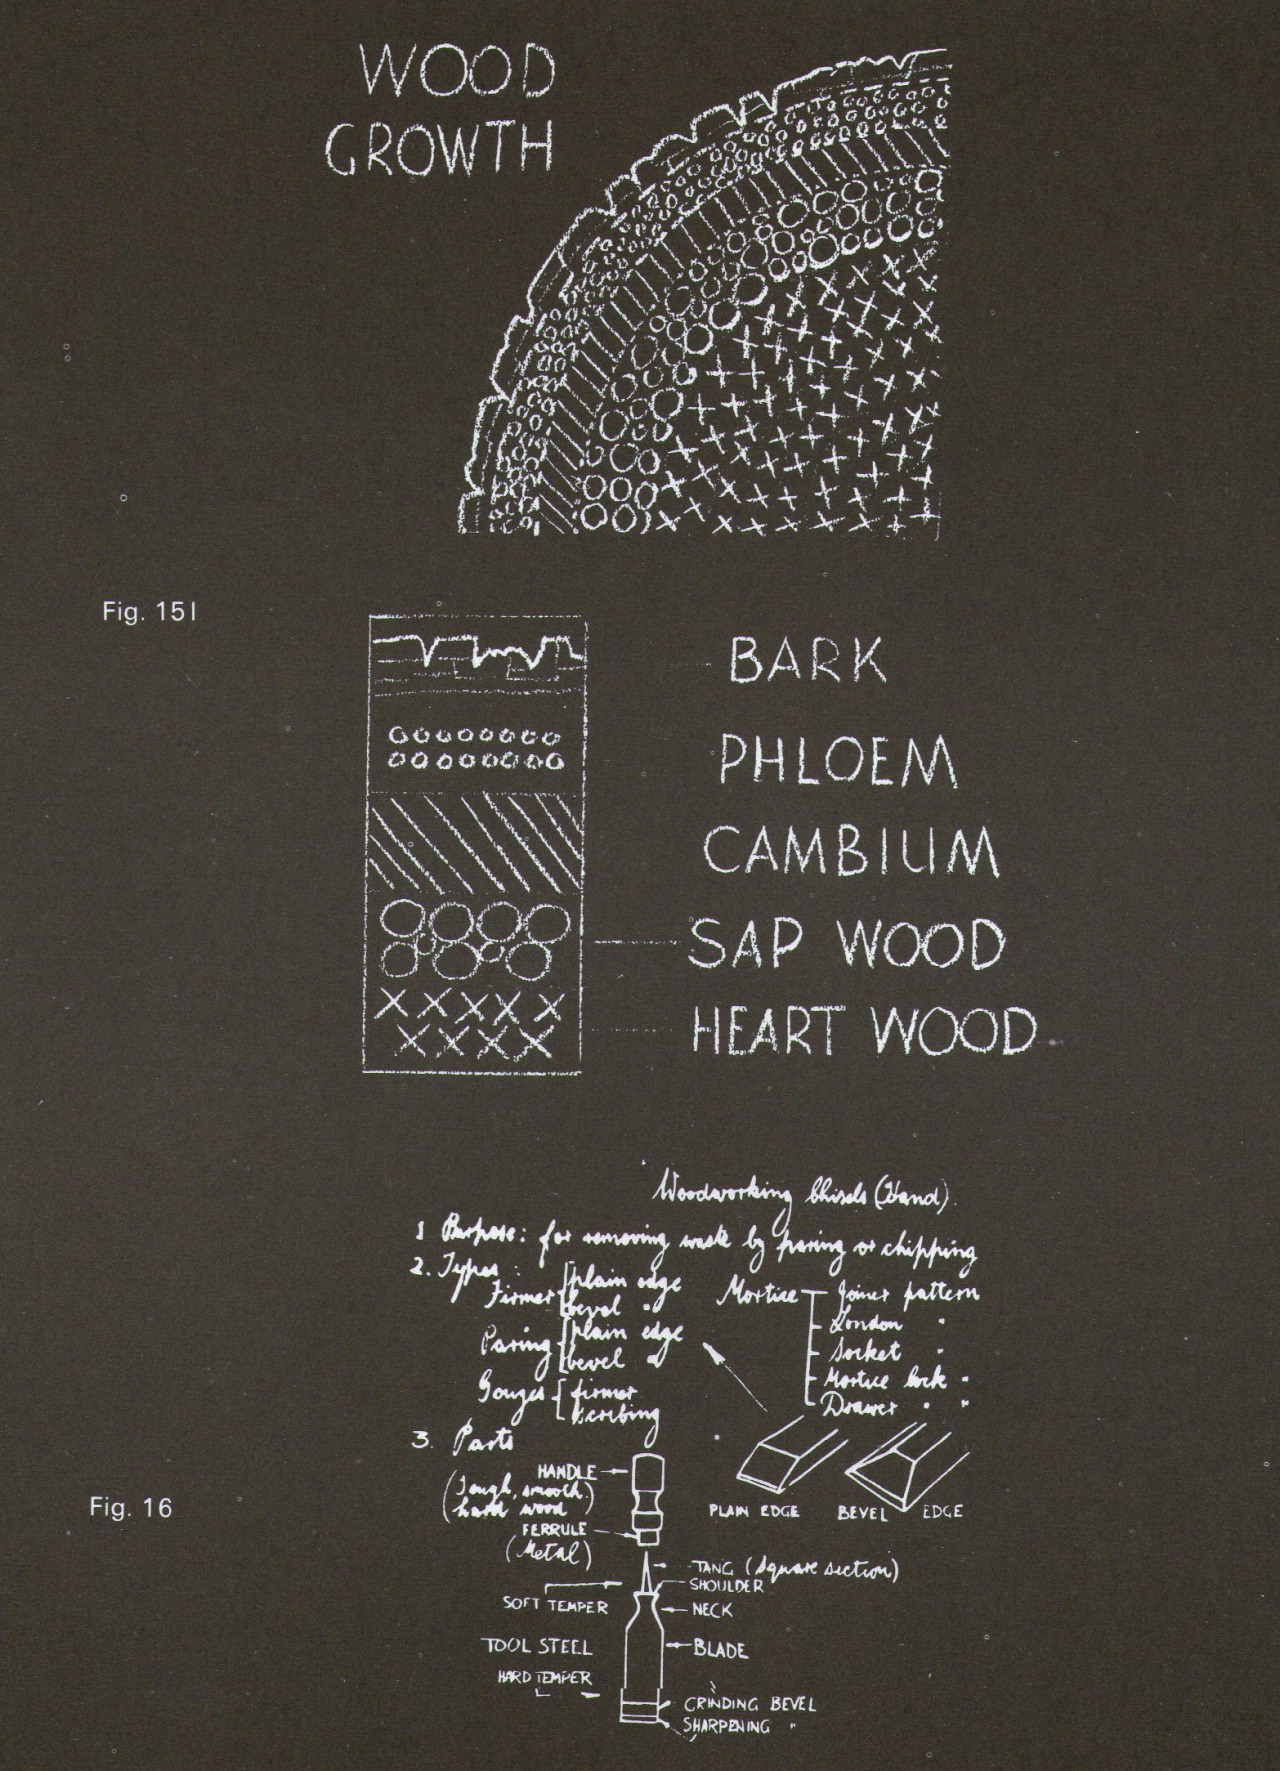 WOOD
GROWTH
Fig. 151
BARK
PHLOEM
CAMBIUM
SAP WOOD
HEART WOOD
Woodworking Chisels (Hand).
1 Purpose: for removing waste by paring or chipping
2. Types :
Firmer plain edge
bevel "
Paring plain edge
bevel "
Gouges firmer
scribing
Mortice Joiner pattern
London "
Socket "
Mortice lock "
Drawer " "
3. Parts
HANDLE
(Tough, smooth,
hard wood)
FERRULE
(Metal)
Fig. 16
PLAIN EDGE
BEVEL EDGE
TANG (Square section)
SHOULDER
SOFT TEMPER
NECK
TOOL STEEL
BLADE
HARD TEMPER
GRINDING BEVEL
SHARPENING "